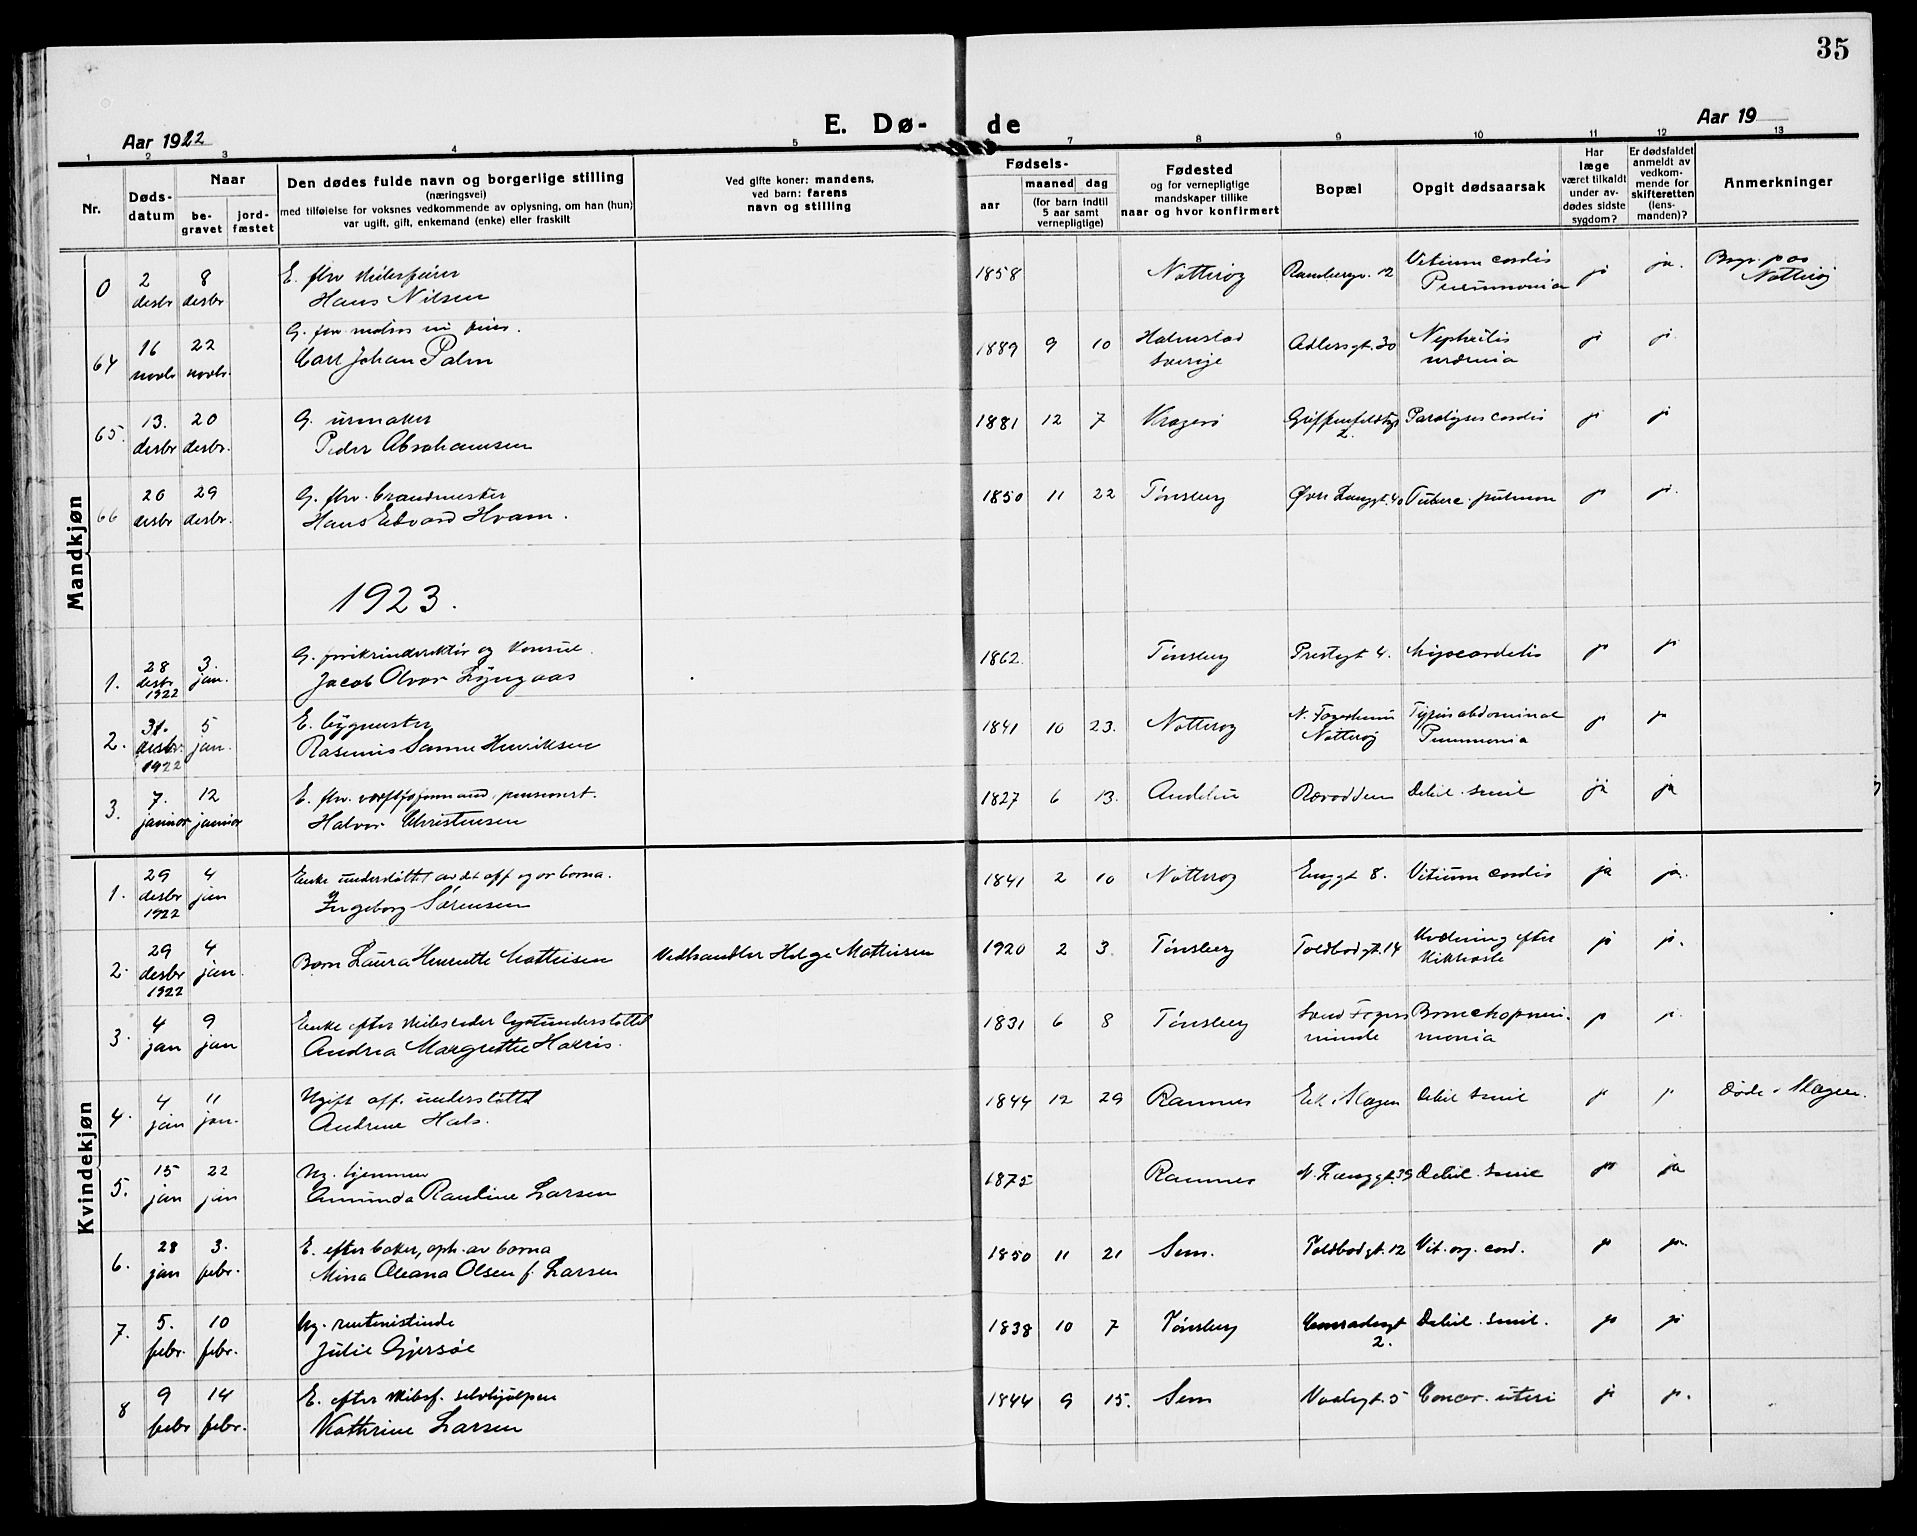 35
Aar 1922
E. Dø-
de
Aar 19
1 2 3 4 5 7 8 9 10 11 12 13
Nr.
Døds-
datum
Naar
be-
gravet
jord-
fæstet
Den dødes fulde navn og borgerlige stilling
(næringsvei)
med tilføielse for voksnes vedkommende av oplysning, om han (hun)
var ugift, gift, enkemand (enke) eller fraskilt
Ved gifte koner: mandens,
ved barn: farens
navn og stilling
Fødsels-
aar
maaned dag
(for barn indtil
5 aar samt
vernepligtige)
Fødested
og for vernepligtige
mandskaper tillike
naar og hvor konfirmert
Bopæl
Opgit dødsaarsak
Har
læge
været tilkaldt
under av-
dødes sidste
sygdom?
Er dødsfaldet
anmeldt av
vedkom-
mende for
skifteretten
(lens-
manden)?
Anmerkninger
Mandkjøn
0 2 desbr 8 desbr E. fhv.
Hans Nilsen
1858 Nøtterøy 12 Vitium cordis
Pneumonia ja ja. Begr. paa
Nøtterøy
64 16 novbr 22 novbr.
Carl Johan Palm
1889 9 10 Halmstad
Sverige Adlersgt. 30 Nephritis
uræmia ja ja.
65. 13. desbr 20 desbr. G. urmaker
Peder Abrahamsen
1881 12 7 Kragerø Griffenfeldtsgt
2. Paralyses cordis ja ja
66 20 desbr 29 desbr. G. fhv. brandmester
Hans Edvard Hvam.
1850 11 22 Tønsberg Øvre Langgt. 40 Tuberc. pulmon ja ja.
1923.
1. 28 desbr 1922 3. jan. G. direktør og konsul.
Jacob Olvar Lyngaas
1862. Tønsberg Prestegt 4. Myocarditis ja ja
2. 31. desbr. 1922 5 jan. E. bygmester
Rasmus Sanne Henriksen
1841 10 23. Nøtterøy
Nøtterøy abdominal
Pneumonia ja ja
3. 7. januar 12 januar E. fhv. pensionert.
Halvor Christensen
1827 6 13. Andebu Debil. senil ja ja
Kvindekjøn
1. 29 desbr 1922 4 jan Enke understøttet av det off og av barna.
Ingeborg Sørensen
1841 2 10 Nøtterøy Enggt 8. Vitium cordis ja ja.
2. 29 desbr 1922 4 jan. Barn Laura Henriette Mathisen Vedhandler Helge Mathisen
1920 2 3. Tønsberg Toldbodgt. 14 Kvælning efter
kikhoste ja ja.
3. 4 jan 9 jan Enke efter understøttet
Andrea Margrethe Harris.
1831 6 8 Tønsberg Svend Foyns
minde Bronchopneu-
monia ja ja.
4. 4 jan 11 jan. Ugift off. understøttet
Andrine Hals.
1844 12 29 Ramnes Eik i Slagen Debil senil ja ja Døde i Slagen.
5. 15 jan 22 jan Ug. hjemme
Amunda Randine Larsen
1875 Ramnes N. Langgt. 39 Debil. senil ja ja
6. 28 jan 3. febr. E. efter baker, oph. av barna
Mina Oleana Olsen f. Larsen
1850 11 21 Sem. Toldbodgt. 12 Vit. org. cord. ja ja.
7. 5. febr. 10 febr. Ug. rentenistinde
Julie Gjersøe
1838 10 7 Tønsberg Conradisgt
2. Debil. senil. ja ja
8 9 febr 14 febr. E. efter skibsf. selvhjulpen
Kathrine Larsen
1844 9 15. Sem 5 Cancer. uteri ja ja.